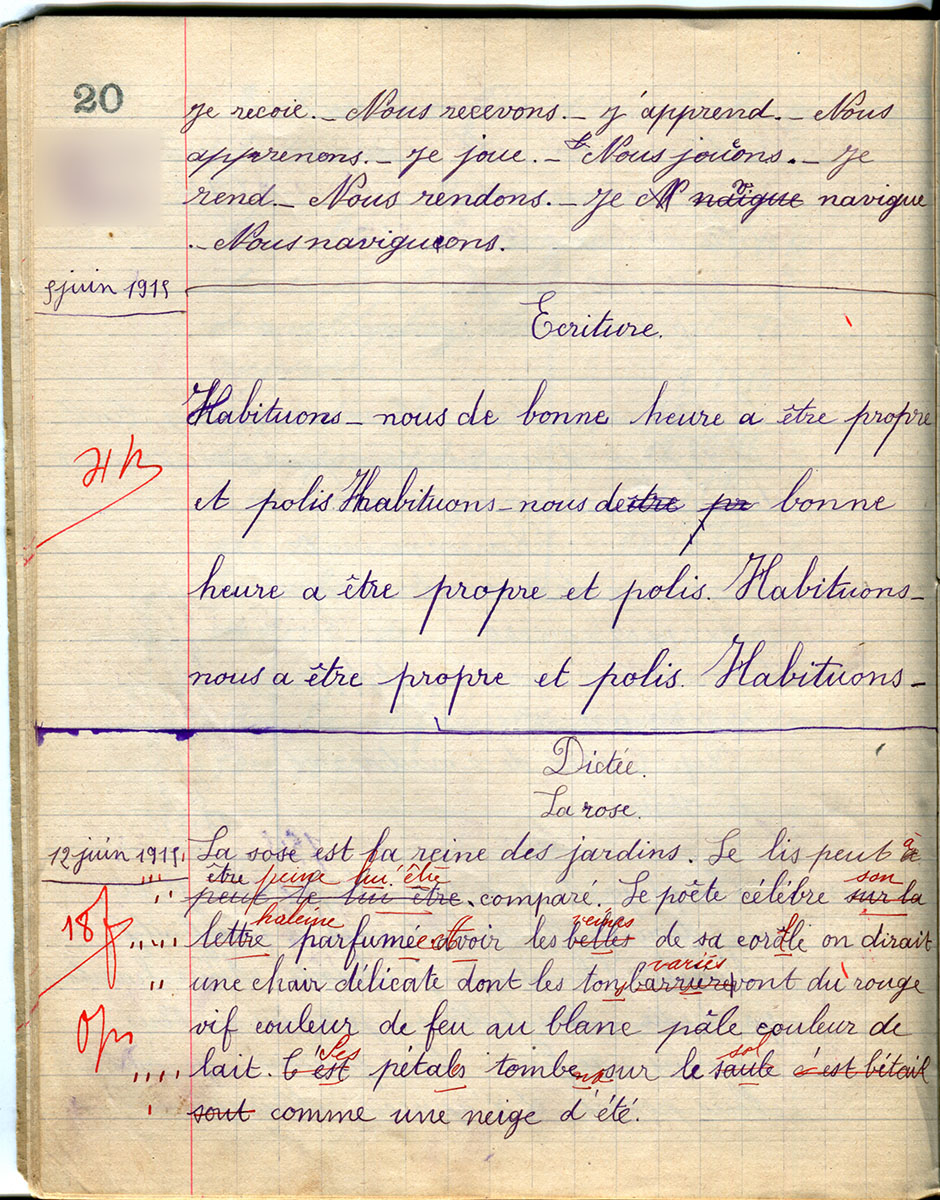 20
Je recoie. _ Nous recevons. _ j'apprend. _ Nous
apprenons. _ Je joue. _ Nous jouons. _ Je
rend. _ Nous rendons. _ Je N navigue navigue
. _ Nous naviguons.
5 juin 1915
Ecriture.
Habituons _ nous de bonne heure a être propre
HB
et polis. Habituons _ nous de être pr bonne
heure a être propre et polis. Habituons _
nous a être propre et polis. Habituons _
Dictée.
La rose.
12 juin 1915. La rose est la reine des jardins. Le lis peut à
être peine lui être
peut le lui être. comparé. Le poête célébre sur la
son
18 f
haleine veines
lettre parfumée voir les belles de sa on dirait
variés
une chair délicate dont les tons barriere vont du rouge
0 ps
vif couleur de feu au blanc pâle couleur de
Ses sol
lait. C'est pétales tombe sur le saule c'est bétail
sont comme une neige d'été.